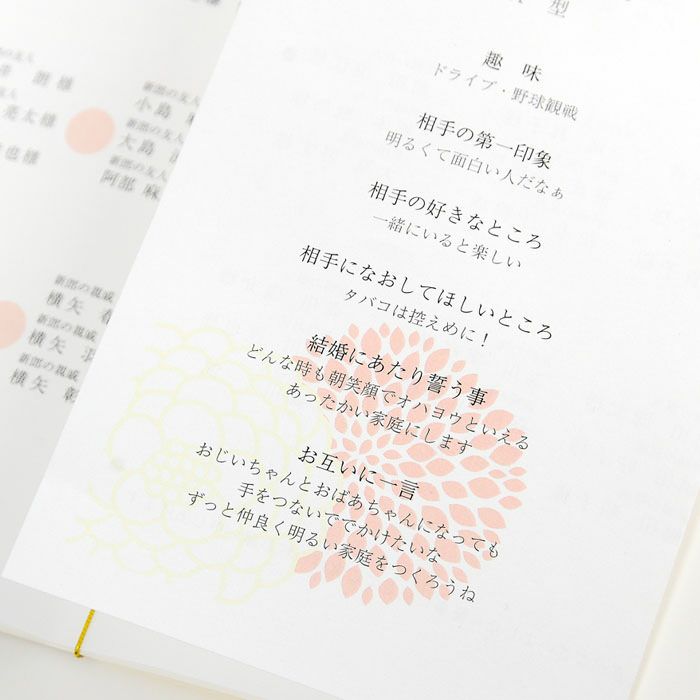 型
趣味
ドライブ・野球観戦
相手の第一印象
明るくて面白い人だなぁ
相手の好きなところ
一緒にいると楽しい
相手になおしてほしいところ
タバコは控えめに！
結婚にあたり誓う事
どんな時も朝笑顔でオハヨウといえる
あったかい家庭にします
お互いに一言
おじいちゃんとおばあちゃんになっても
手をつないででかけたいな
ずっと仲良く明るい家庭をつくろうね
亮太様
也様
新郎の友人
小島
新郎の友人
大島
新郎の友人
阿部 麻
新郎の親戚
横矢
新郎の親戚
横矢
新郎の親戚
横矢 彰